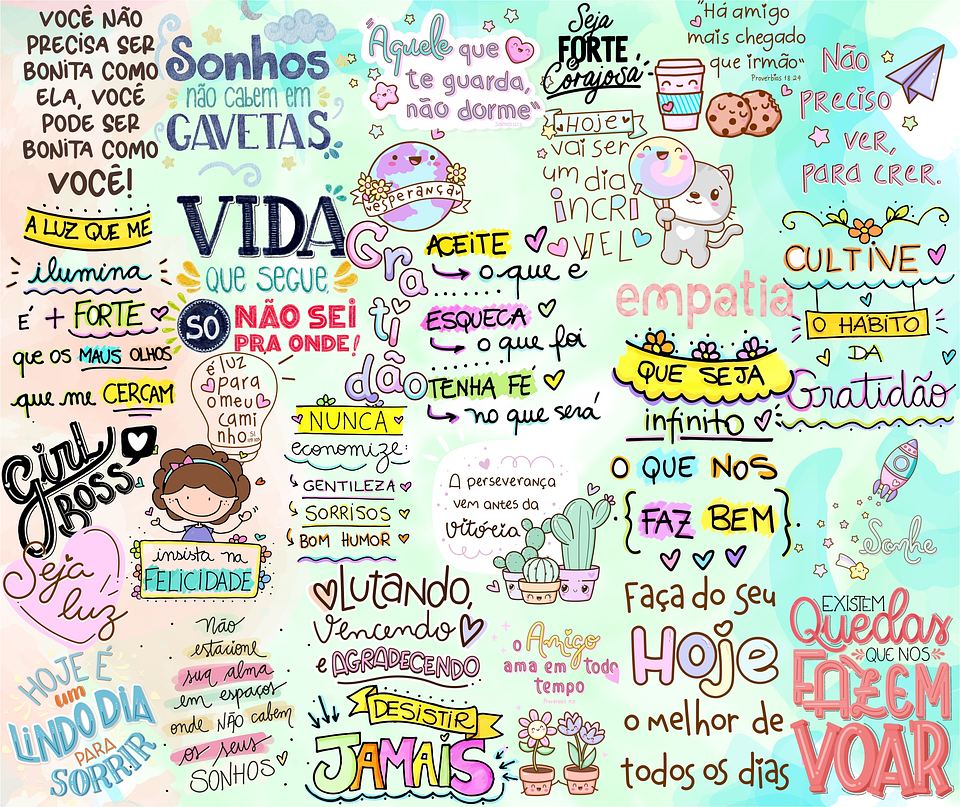 VOCÊ NÃO
PRECISA SER
BONITA COMO
ELA, VOCÊ
PODE SER
BONITA COMO
VOCÊ!
Sonhos
não cabem em
GAVETAS
Aquele que
te guarda,
não dorme"
Seja
FORTE
Corajosa!
"Há amigo
mais chegado
que irmão"
Provérbios 18:24
Não
preciso
ver,
para crer.
HOJE
vai ser
um dia
incrí
VEL
esperança
A LUZ QUE ME
ilumina
É + FORTE
que os MAUS OLHOS
que me CERCAM
VIDA
QUE SEGUE,
SÓ NÃO SEI
PRA ONDE!
Gra
ti
dão
ACEITE
o que é
ESQUEÇA
o que foi
TENHA FÉ
no que será
empatia
CULTIVE
O HÁBITO
DA
Gratidão
é luz
para
o meu
cami
nho.
QUE SEJA
infinito
O QUE NOS
FAZ BEM
NUNCA
economize:
GENTILEZA
SORRISOS
BOM HUMOR
Girl
BOSS
insista na
FELICIDADE
A perseverança
vem antes da
Vitória
Seja
luz
Sonhe
Lutando,
Vencendo
e AGRADECENDO
Faça do seu
Hoje
o melhor de
todos os dias
EXISTEM
Quedas
QUE NOS
FAZEM
VOAR
Não
estacione
sua alma
em espaços
onde NÃO cabem
os seus
SONHOS
o Amigo
ama em todo
tempo
HOJE É
um
LINDO DIA
PARA
SORRIR
DESISTIR
JAMAIS